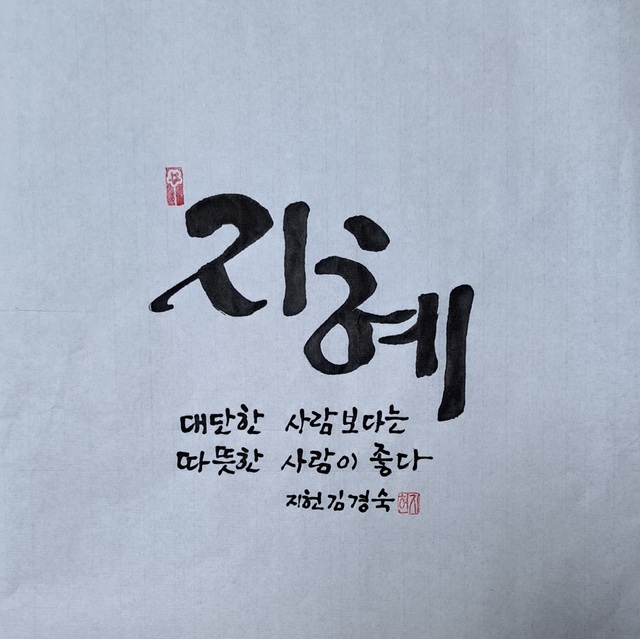 지혜
대단한 사람보다는
따뜻한 사람이 좋다
지현김경숙